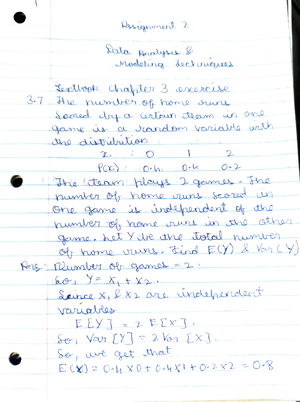 Assignment 2
Data Analysis &
Modeling techniques
Textbook Chapter 3 exercise
3-7 The number of home runs
scored by a certain team in one
game is a random variable with
the distribution
x : 0 1 2
P(x) : 0.4 0.4 0.2
The team plays 2 games. The
number of home runs scored in
one game is independent of the
number of home runs in the other
game. Let Y be the total number
of home runs. Find E(Y) & Var (Y)
Ans: Number of games = 2.
So, Y = X1 + X2.
Since X1 & X2 are independent
variables
E[Y] = 2 E[X].
So, Var [Y] = 2 Var [X].
So, we get that
E(X) = 0.4 X 0 + 0.4 X 1 + 0.2 X 2 = 0.8